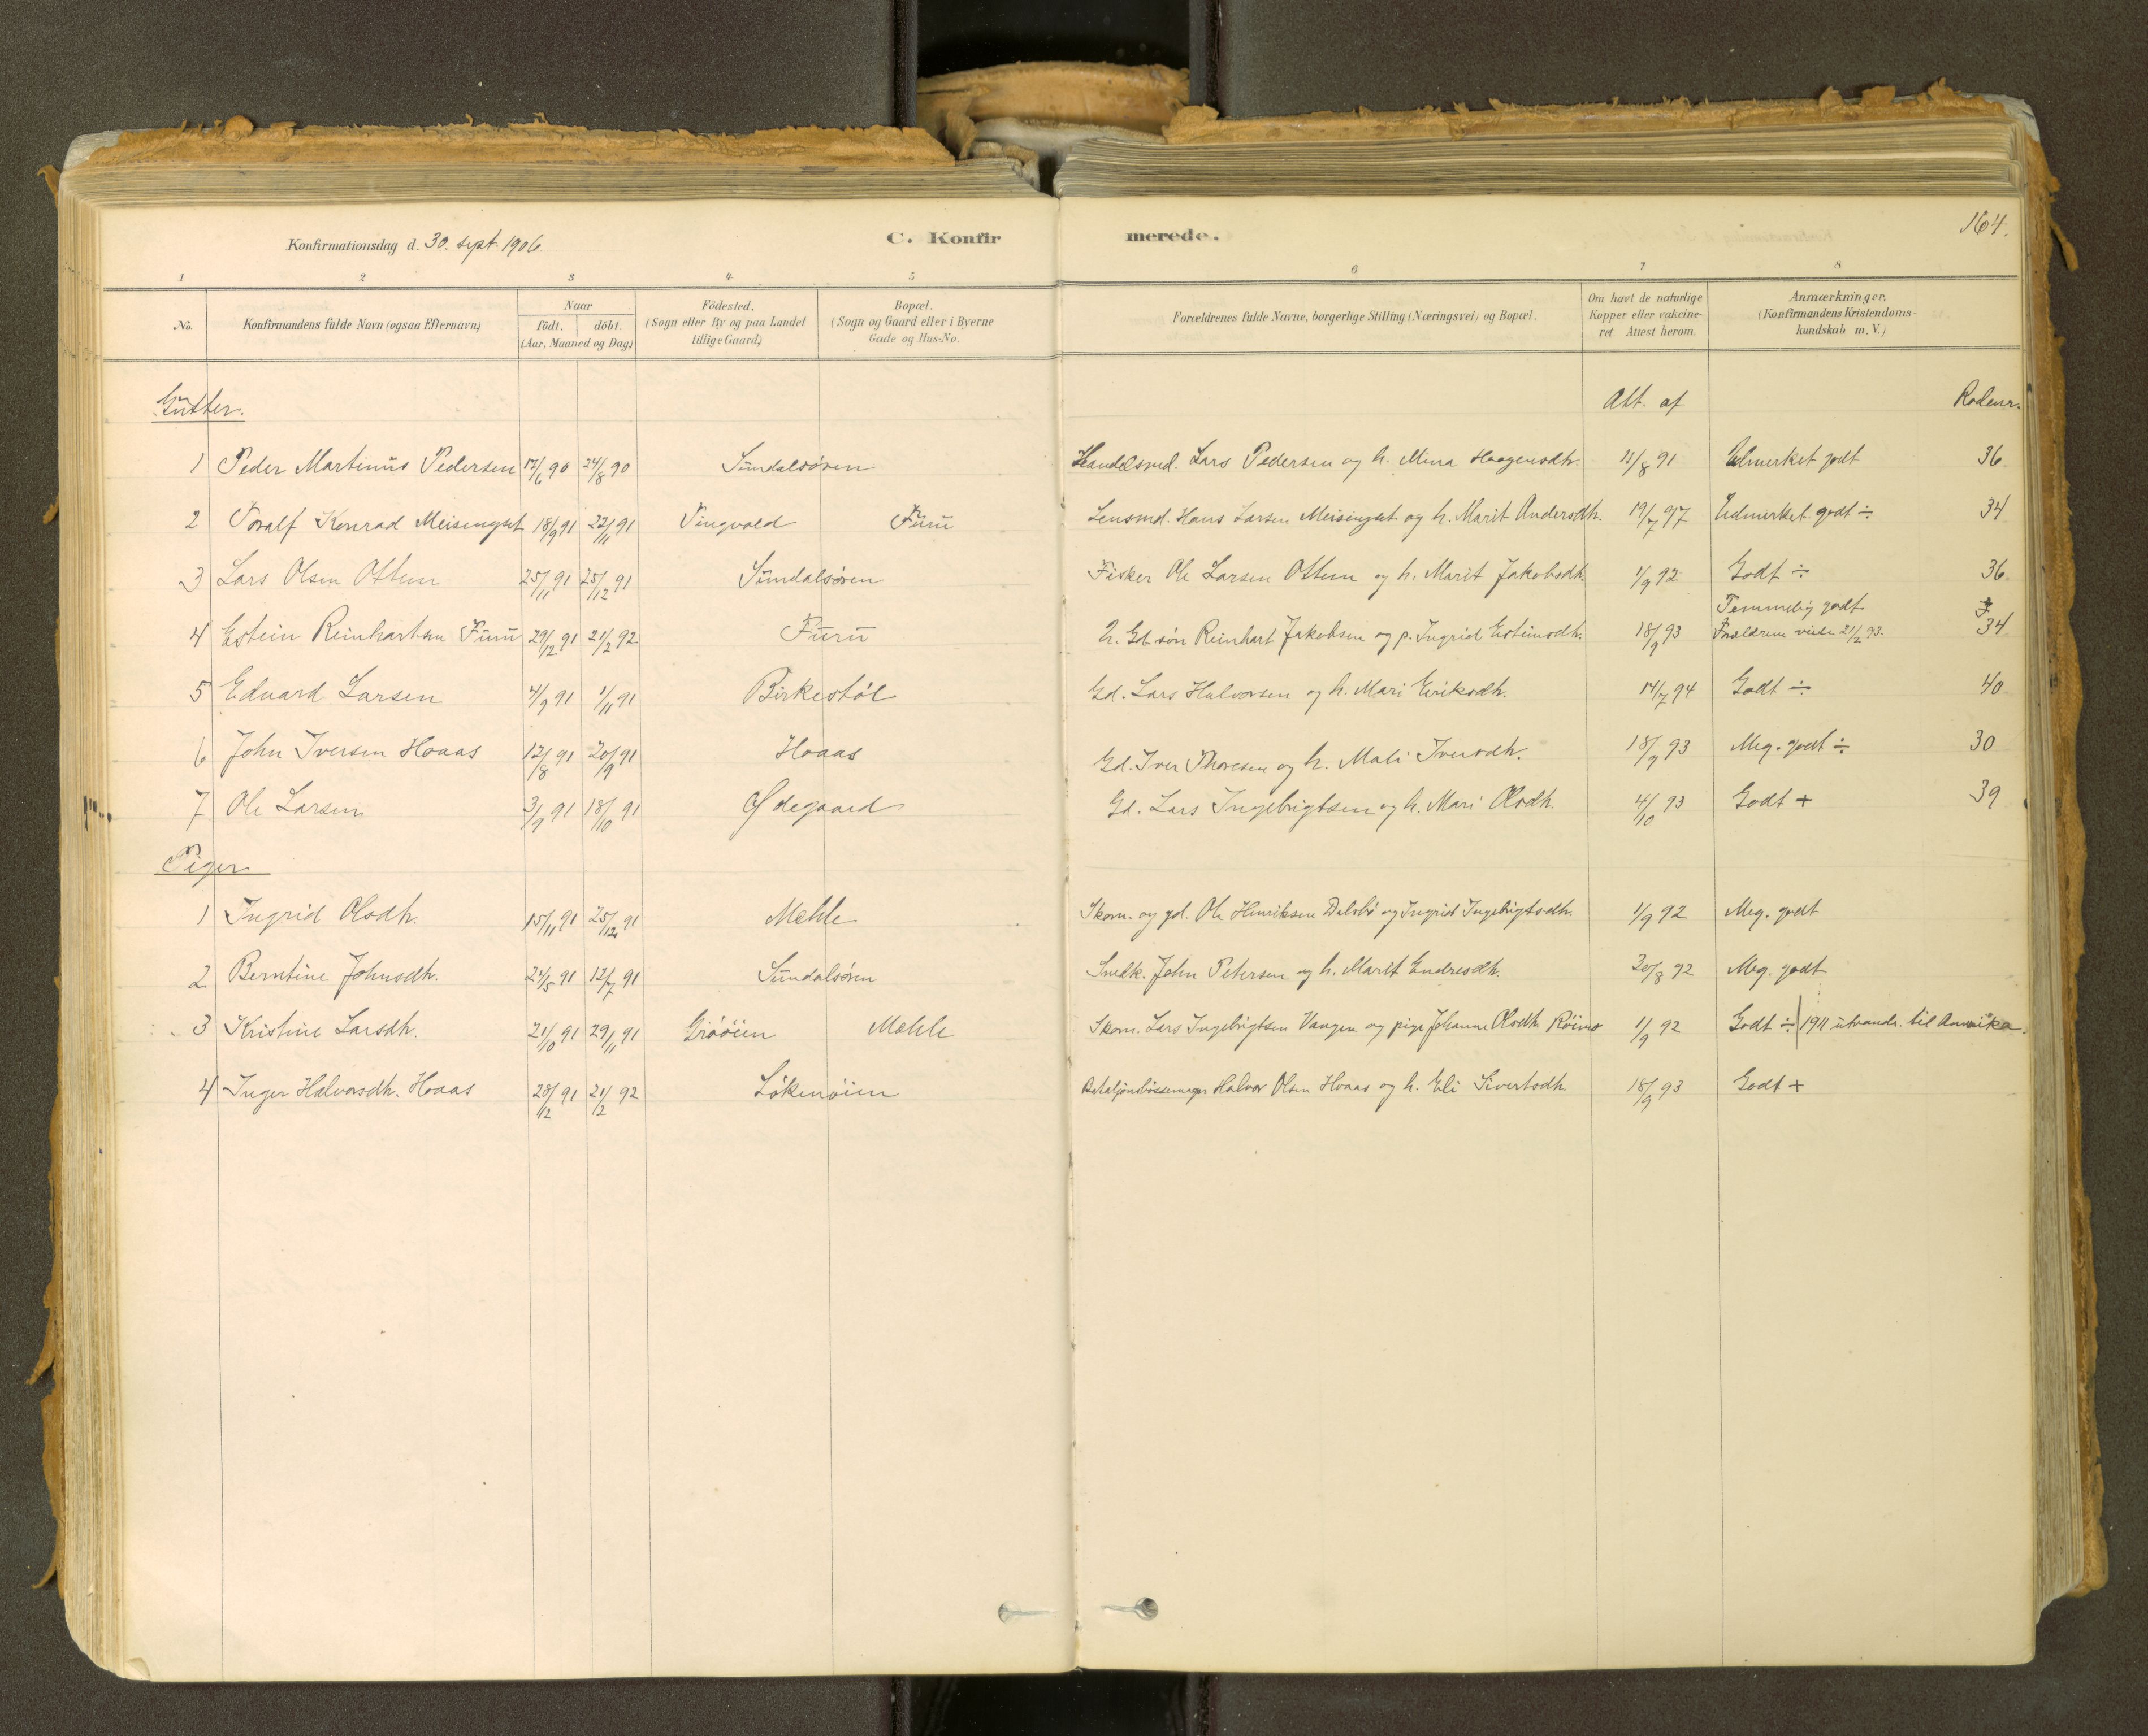 164.
Konfirmationsdag d. 30. sept. 1906. C. Konfirmerede.
1 2 3 4 5 6 7 8
No. Konfirmandens fulde Navn (ogsaa Efternavn) Naar født. døbt. (Aar, Maaned og Dag) Fødested. (Sogn eller By og paa Landet tillige Gaard) Bopæl. (Sogn og Gaard eller i Byerne Gade og Hus-No. Forældrenes fulde Navne, borgerlige Stilling (Næringsvei) og Bopæl. Om havt de naturlige Kopper eller vakcineret Attest herom. Anmærkninger. (Konfirmandens Kristendomskundskab m. V.)
Gutter. Att. af Rodenr.
1 Peder Martinus Pedersen 12/6 90 24/8 90 Sundalsøren Handelsmd. Lars Pedersen og h. Mina Haagensdtr. 11/8 91 Udmerket godt 36
2 Toralf Konrad Meisingset 18/9 91 22/11 91 Tingvold Furu Lensmd. Hans Larsen Meisingset og h. Marit Andersdtr. 19/7 97 Udmerket godt ÷ 34
3 Lars Olsen Ottem 25/11 91 25/12 91 Sundalsøren Fisker Ole Larsen Ottem og h. Marit Jakobsdtr. 1/9 92 Godt ÷ 36
4 Estein Reinhartsen Furu 29/12 91 21/2 92 Furu U. Gbsøn Reinhart Jakobsen og p. Ingrid Esteinsdtr. 18/9 93 Temmelig godt Forældrene viede 21/2 93. 34
5 Edvard Larsen 4/9 91 1/11 91 Birkestøl Gd. Lars Halvorsen og h. Mari Eriksdtr. 14/7 94 Godt ÷ 40
6 John Iversen Hoaas 12/8 91 20/9 91 Hoaas Gd. Iver Thoresen og h. Mali Iversdtr. 18/9 93 Meg. godt ÷ 30
7 Ole Larsen 3/9 91 18/10 91 Ødegaard Gd. Lars Ingebrigtsen og h. Mari Olsdtr. 4/10 93 Godt + 39
Piger
1 Ingrid Olsdtr. 15/11 91 25/12 91 Mæhle Skom. og gd. Ole Henriksen Dalsbø og Ingrid Ingebrigtsdtr. 1/9 92 Meg. godt
2 Berntine Johnsdtr. 24/5 91 12/7 91 Sundalsøren Snedk. John Petersen og h. Marit Endresdtr. 20/8 92 Meg. godt
3 Kristine Larsdtr. 21/10 91 29/11 91 Grøøien Mæhle Skom. Lars Ingebrigtsen Vangen og pige Johanne Olsdtr. Røimo 1/9 92 Godt ÷ | 1911 utvandr. til Amerika.
4 Inger Halvorsdtr. Hoaas 28/12 91 21/2 92 Løkenøien Bataljonsbøssemager Halvor Olsen Hoaas og h. Eli Sivertsdtr. 18/9 93 Godt +